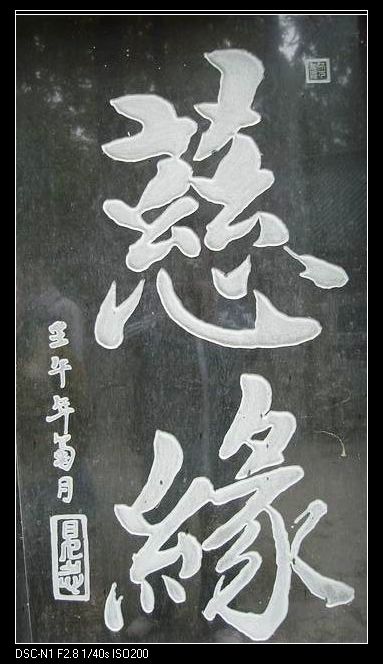 慈緣
壬午年菊月
DSC-N1 F2.8 1/40s ISO200